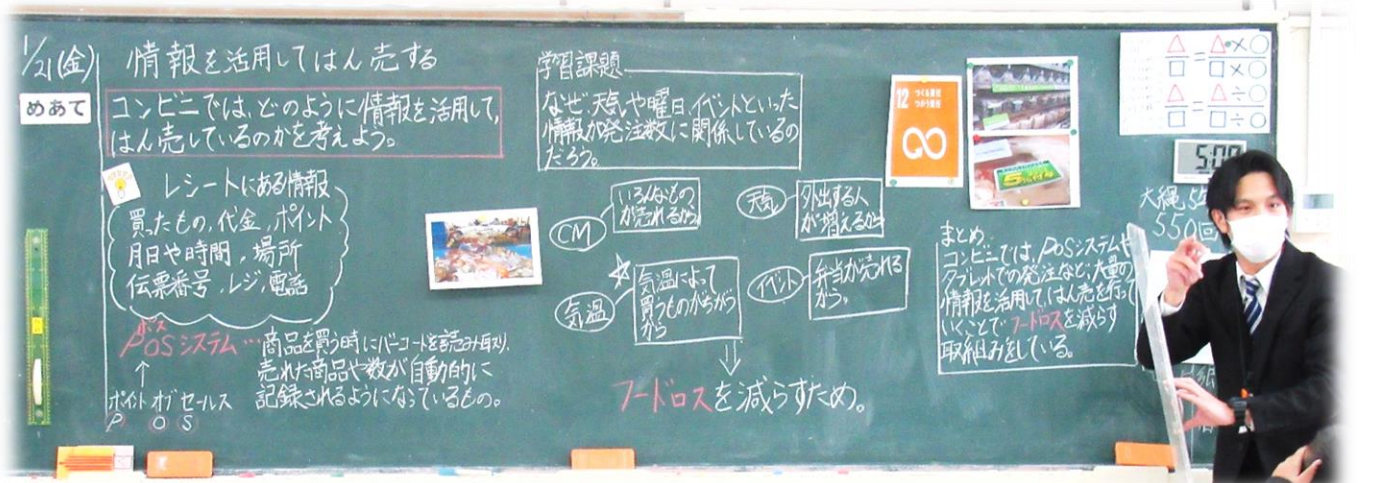 1/21(金)
情報を活用してはん売する
めあて
コンビニでは、どのように情報を活用して、
はん売しているのかを考えよう。
レシートにある情報
買ったもの、代金、ポイント
月日や時間、場所
伝票番号、レジ、電話
ポス
POSシステム…
商品を買う時にバーコードを読み取り、
売れた商品や数が自動的に
記録されるようになっているもの。
↑
ポイント オブ セールス
P O S
学習課題
なぜ、天気や曜日、イベントといった
情報が発注数に関係しているの
だろう。
CM
いろんなもの
が売れるから
天気
外出する人
が増えるから
気温
気温によって
買うものがちがう
から
イベント
弁当が売れる
から。
⇓
フードロスを減らすため。
12 つくる責任
つかう責任
まとめ
コンビニでは、POSシステムや
タブレットでの発注など、大量の
情報を活用して、はん売を行って
いくことでフードロスを減らす
取組みをしている。
△/□=△×○/□×○
△/□=△÷○/□÷○
5:00
大縄
550回